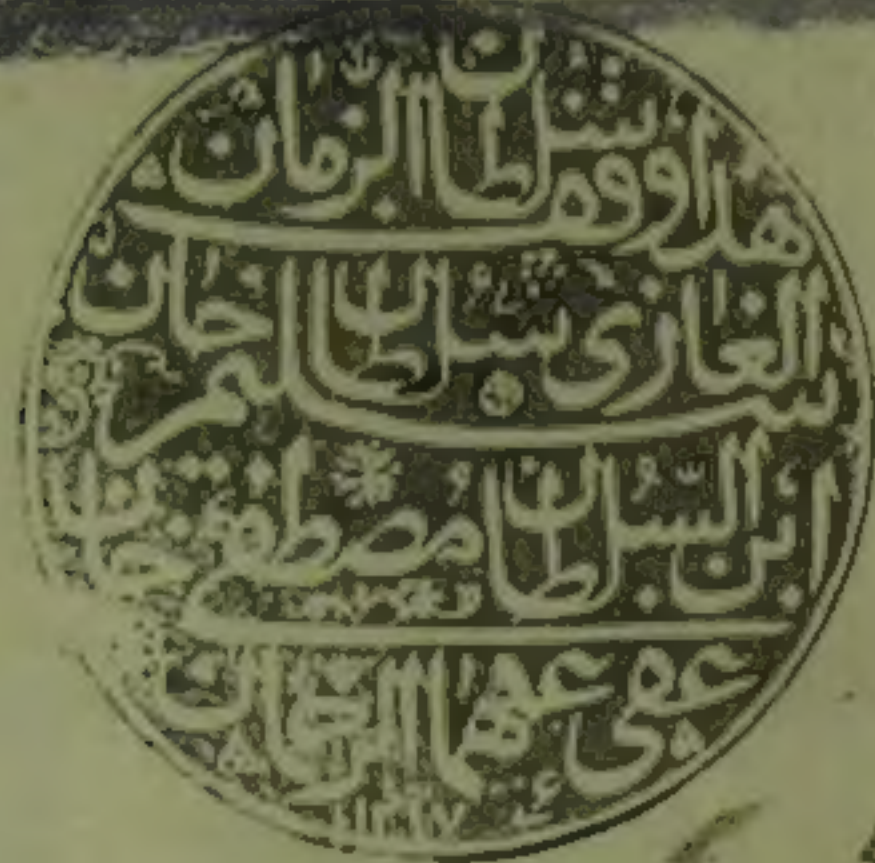 هذا وقف سلطان الزمان
الغازى سلطان سليم خان
ابن السلطان مصطفى خان
عفى عنهما الرحمان